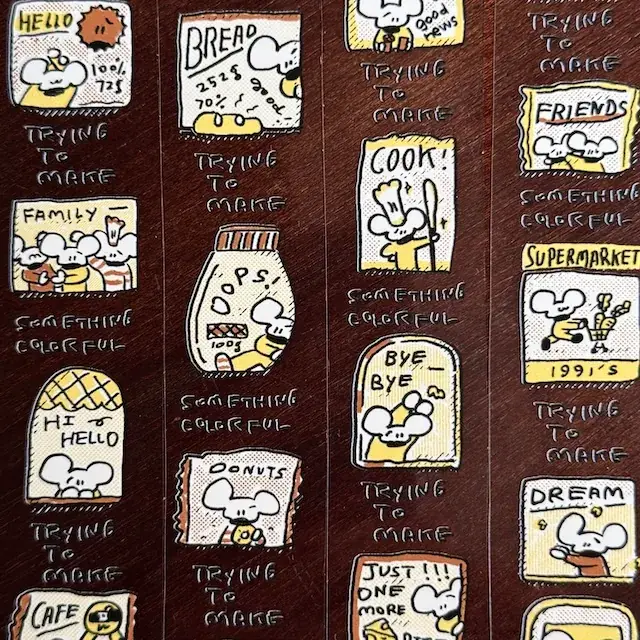 HELLO
100%
72g
TRYING
TO
MAKE
FAMILY
SOMETHING
COLORFUL
HI
HELLO
TRYING
TO
MAKE
CAFE
BREAD
252g
70%
good
TRYING
TO
MAKE
OOPS!
100g
SOMETHING
COLORFUL
DONUTS
TRYING
TO
MAKE
good
news
TRYING
TO
MAKE
COOK!
SOMETHING
COLORFUL
BYE
BYE
TRYING
TO
MAKE
JUST!!!
ONE
MORE
TRYING
TO
MAKE
FRIENDS
SOMETHING
COLORFUL
SUPERMARKET
1991'S
TRYING
TO
MAKE
DREAM